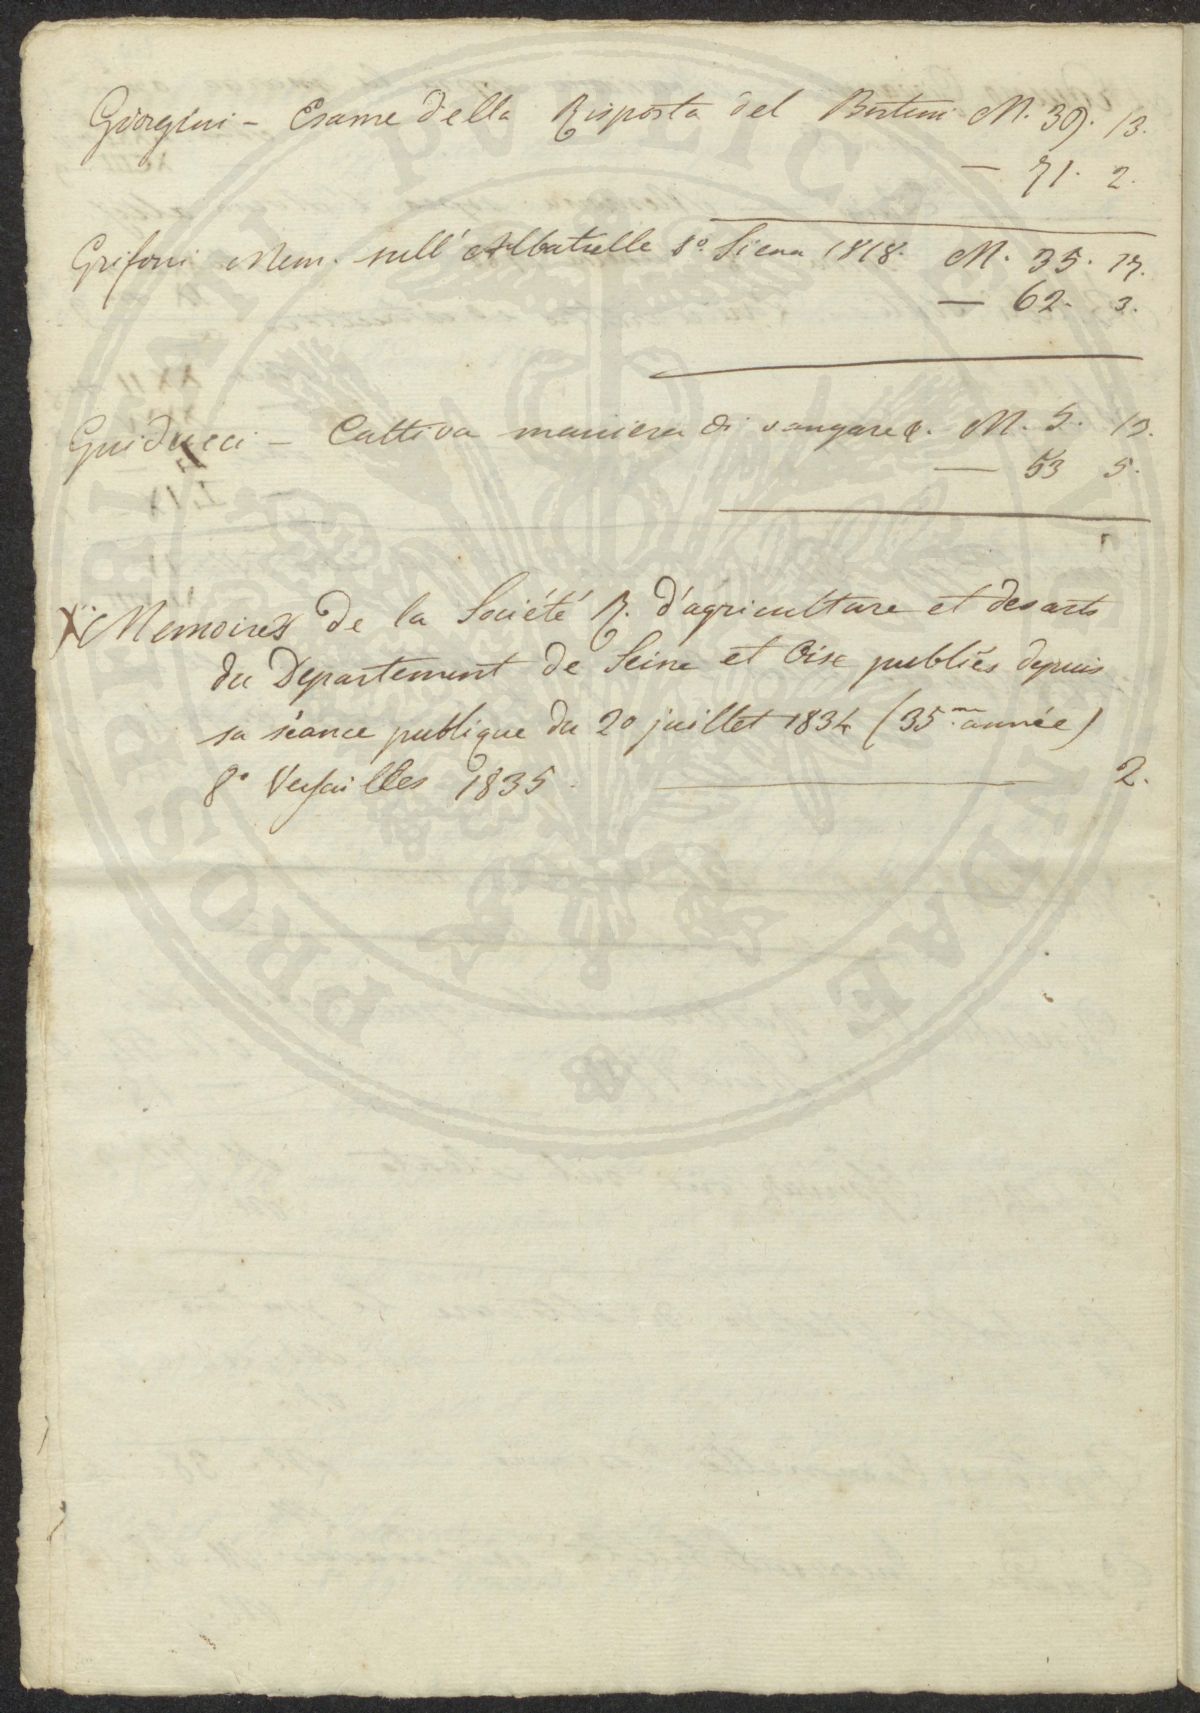 Giorgini - Esame della Risposta del Bertini M. 39. 13.
— 71. 2.
Grifoni Mem. sull' Albatrelle 8° Siena 1818. M. 35. 17.
— 62. 3.
Guiducci - Cattiva maniera di vangare &. M. 5. 13.
— 53 5.
X Memoires de la Société R. d'agriculture et des arts
du Departement de Seine et Oise publiés depuis
sa séance publique du 20 juillet 1834 (35.me année)
8° Versailles 1835. — 2.
PROSPERITATI PUBLICAE AUGENDAE